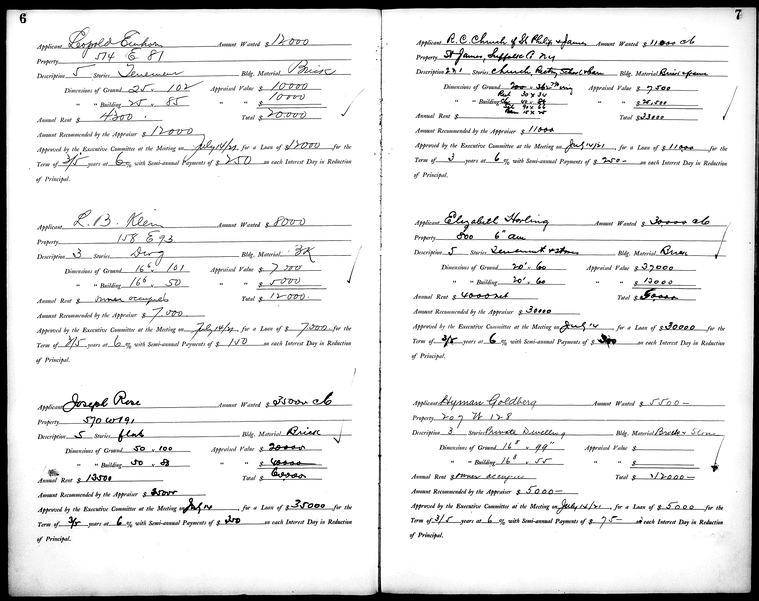 6
Applicant Leopold Einhorn Amount Wanted $ 12000
Property 514 E 81
Description 5 Stories Tenement Bldg. Material Brick
Dimensions of Ground 25 . 102 Appraised Value $ 10000
" " Building 25 . 85 " " $ 10000
Annual Rent $ 4200 Total $ 20.000
Amount Recommended by the Appraiser $ 12000
Approved by the Executive Committee at the Meeting on July 14/21 for a Loan of $ 12000 for the
Term of 3/5 years at 6 % with Semi-annual Payments of $ 250 on each Interest Day in Reduction
of Principal.
Applicant L. B. Klein Amount Wanted $ 8000
Property 158 E 93
Description 3 Stories Dwg Bldg. Material Bk
Dimensions of Ground 16⁶ . 101 Appraised Value $ 7000
" " Building 16⁶ . 50 " " $ 5000
Annual Rent $ owner occupies Total $ 12000
Amount Recommended by the Appraiser $ 7,000
Approved by the Executive Committee at the Meeting on July 14/21 for a Loan of $ 7000 for the
Term of 3/5 years at 6 % with Semi-annual Payments of $ 150 on each Interest Day in Reduction
of Principal.
Applicant Joseph Rose Amount Wanted $ 35000
Property 570 W 191
Description 5 Stories flat Bldg. Material Brick
Dimensions of Ground 50 . 100 Appraised Value $ 20000
" " Building 50 . 88 " " $ 40000
Annual Rent $ 13500 Total $ 60000
Amount Recommended by the Appraiser $ 35000
Approved by the Executive Committee at the Meeting on July 14 for a Loan of $ 35000 for the
Term of 3/5 years at 6 % with Semi-annual Payments of $ on each Interest Day in Reduction
of Principal.
7
Applicant R. C. Church of St Philip & James Amount Wanted $ 11000
Property St James, Suffolk Co NY
Description 2 & 1 Stories Church, School & Barn Bldg. Material Brick & frame
Dimensions of Ground Appraised Value $ 7,500
" " Building " " $ 25,500
Annual Rent $ Total $ 33000
Amount Recommended by the Appraiser $ 11000
Approved by the Executive Committee at the Meeting on July 14/21 for a Loan of $ 11000 for the
Term of 3 years at 6 % with Semi-annual Payments of $ 250 — on each Interest Day in Reduction
of Principal.
Applicant Elizabeth Horling Amount Wanted $ 30000
Property 800 6" ave
Description 5 Stories Tenement & stores Bldg. Material Brick
Dimensions of Ground 20' . 60 Appraised Value $ 37000
" " Building 20' . 60 " " $ 13000
Annual Rent $ 4000 net Total $ 50,000
Amount Recommended by the Appraiser $ 30000
Approved by the Executive Committee at the Meeting on July 14 for a Loan of $ 30000 for the
Term of 3/5 years at 6 % with Semi-annual Payments of $ on each Interest Day in Reduction
of Principal.
Applicant Hyman Goldberg Amount Wanted $ 5500 —
Property 207 W 128
Description 3 Stories Private Dwelling Bldg. Material Brick & Stone
Dimensions of Ground 16⁸ . 99" Appraised Value $
" " Building 16⁸ . 55 " " $
Annual Rent $ owner occupies Total $ 12000 —
Amount Recommended by the Appraiser $ 5000 —
Approved by the Executive Committee at the Meeting on July 14/21 for a Loan of $ 5000 for the
Term of 3/5 years at 6 % with Semi-annual Payments of $ 75 — on each Interest Day in Reduction
of Principal.